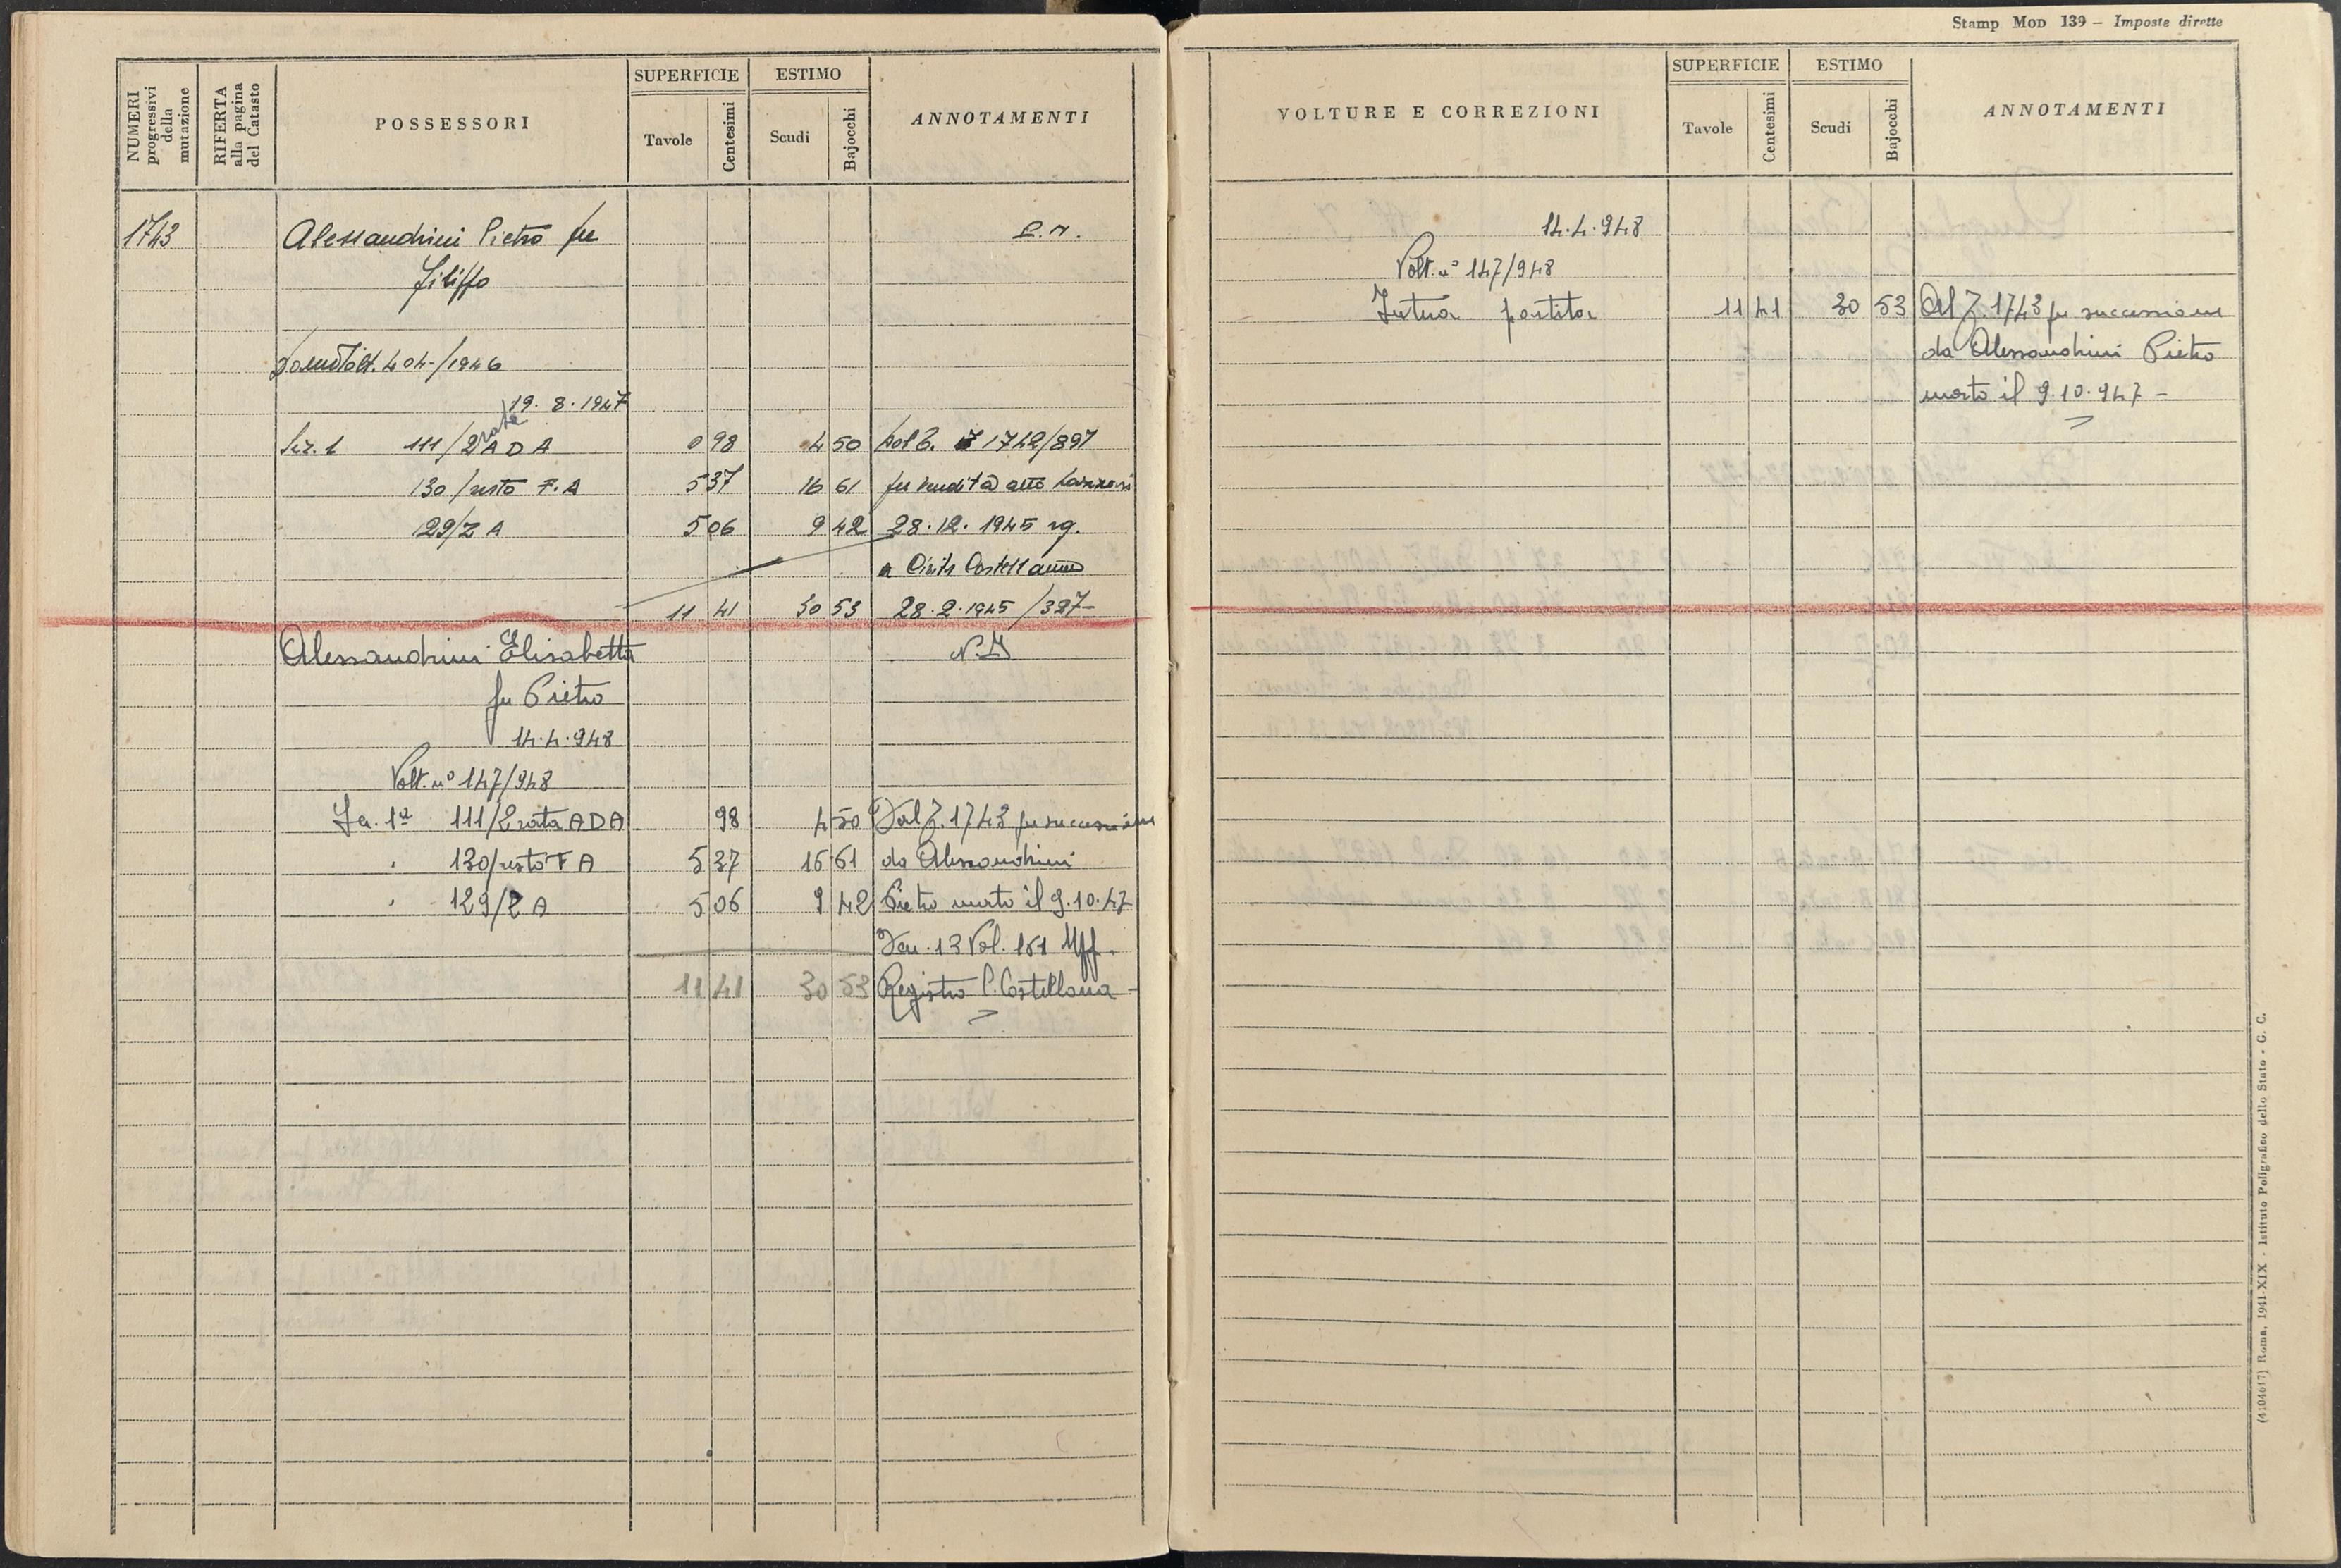 NUMERI progressivi della mutazione
RIFERTA alla pagina del Catasto
POSSESSORI
SUPERFICIE
Tavole
Centesimi
ESTIMO
Scudi
Bajocchi
ANNOTAMENTI
1743 Alessandrini Pietro fu
Filippo
404/1946
19. 8. 1947
rata
Sez. 1 111/2 A D A 0 98 4 50 dal P. 1742/897
130/resto F. A 5 37 16 61 fu vendita atto
129/2 A 5 06 9 42 28. 12. 1945 rg.
a Civita Castellana
11 41 30 53 28. 2. 1945 /327-
Alessandrini Elisabetta
fu Pietro
14. 4. 948
Volt. n° 147/948
Sez. 1a 111/2 rata ADA 98 4 50 Dal P. 1743 fu successione
130/resto F A 5 37 16 61 da Alessandrini
129/2 A 5 06 9 42 Pietro morto il 9. 10. 47
Den. 13 Vol. 161 Uff.
11 41 30 53 Registro C. Castellana -
Stamp Mod 139 – Imposte dirette
VOLTURE E CORREZIONI
SUPERFICIE
Tavole
Centesimi
ESTIMO
Scudi
Bajocchi
ANNOTAMENTI
14. 4. 948
Volt. n° 147/948
Intera partita 11 41 30 53 Al P. 1743 fu successione
da Alessandrini Pietro
morto il 9. 10. 947 -
(4104617) Roma, 1941-XIX - Istituto Poligrafico dello Stato - G. C.